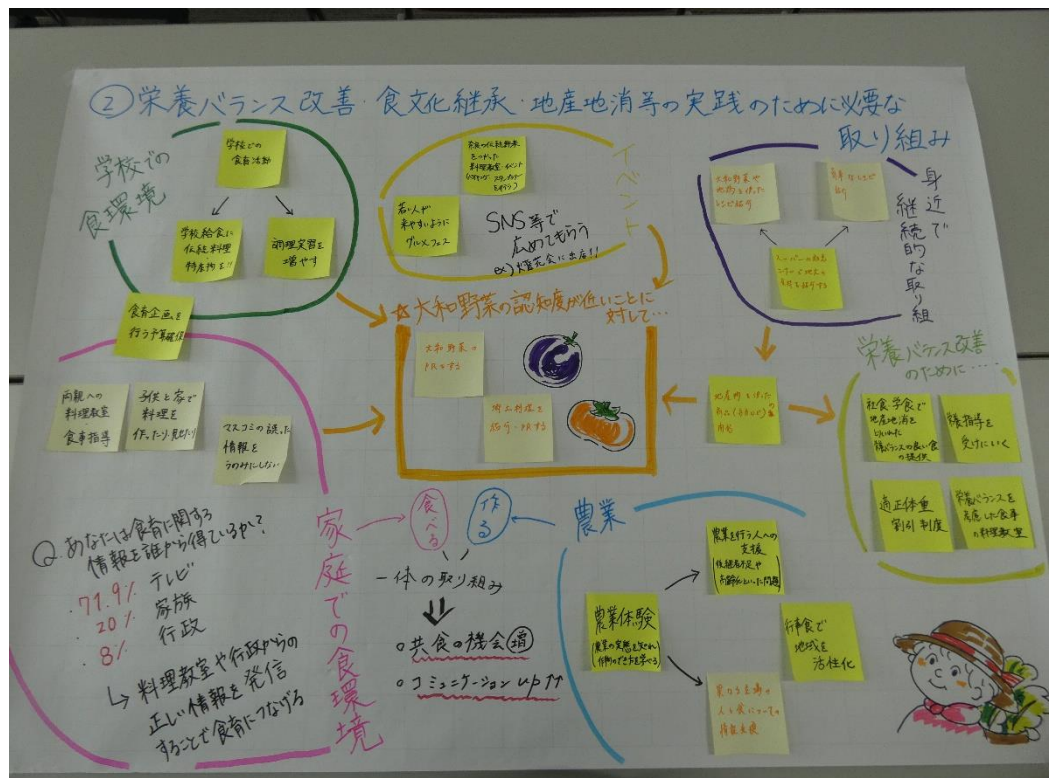 ②栄養バランス改善・食文化継承・地産地消等の実践のために必要な
取り組み
学校での
食環境
学校での
食育活動
学校給食に
伝統料理
特産物を!!
調理実習を
増やす
食育企画を
行う予算確保
イベント
奈良の伝統野菜
をつかった
料理教室イベント
若い人が
来やすいように
グルメフェス
SNS等で
広めてもらう
ex)燈花会に出店!!
身近で
継続的な取り組
大和野菜や
地物を使った
レシピ紹介
☆大和野菜の認知度が近いことに
対して…
大和野菜の
PRをする
郷土料理を
紹介・PRする
地産物を使った
栄養バランス改善
のために…
社食・学食で
地産地消を
とりいれた
バランスの良い食
の提供
指導を
受けにいく
適正体重
割引制度
栄養バランスを
考慮した食事
の料理教室
両親への
料理教室
食事指導
子供と家で
料理を
作ったり、見せたり
マスコミの誤った
情報を
うのみにしない
家庭での食環境
Q.あなたは食育に関する
情報を誰から得ているか?
・71.9% テレビ
・20% 家族
・8% 行政
↳料理教室や行政からの
正しい情報を発信
することで食育につなげる
食べる
作る
一体の取り組み
⇓
○共食の機会増
○コミュニケーションup↑↑
農業
農業体験
農業を行う人への
支援
(後継者不足や
高齢化といった問題)
行事食で
地域を
活性化